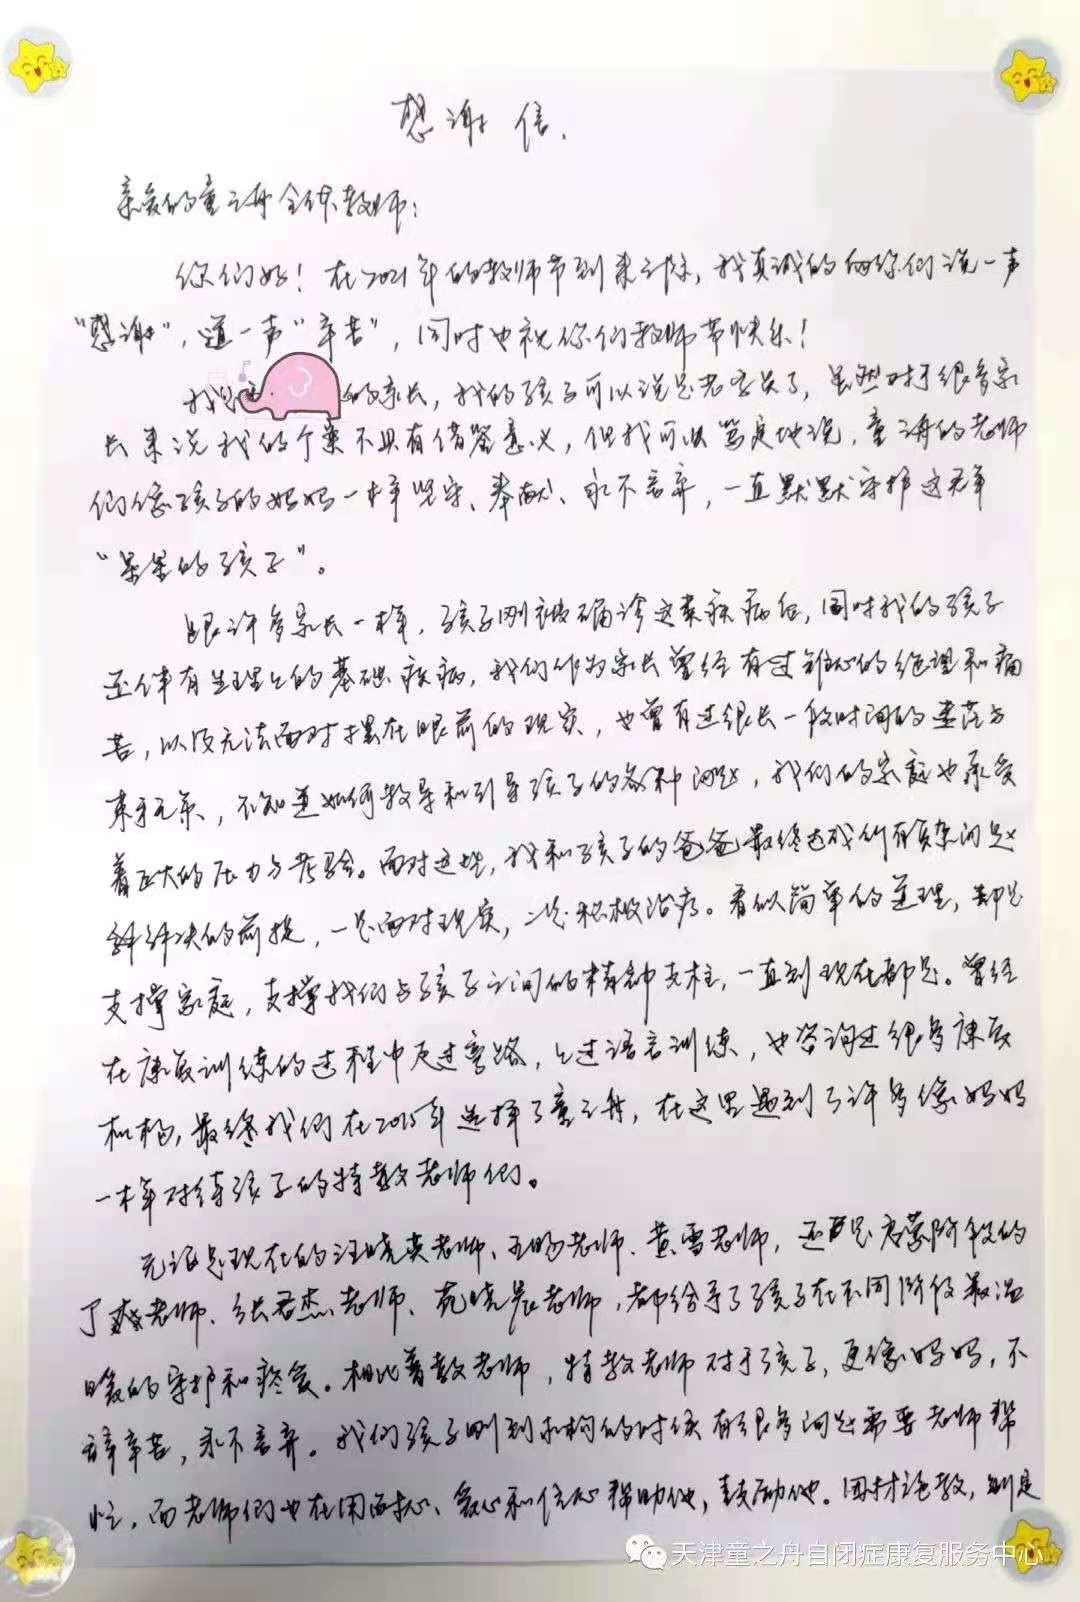 感谢信.
亲爱的童之舟全体教师:
你们好！在2021年的教师节到来之际，我真诚的向你们说一声
“感谢”，道一声“辛苦”，同时也祝你们教师节快乐！
我是 的家长，我的孩子可以说是老学员了，虽然对于很多家
长来说我的个案不具有借鉴意义，但我可以笃定地说，童之舟的老师
们像孩子的妈妈一样坚守、奉献、永不言弃，一直默默守护这群
“星星的孩子”。
跟许多家长一样，孩子刚被确诊这类疾病后，同时我的孩子
还伴有生理上的基础疾病，我们作为家长曾经有过锥心的绝望和痛
苦，以及无法面对摆在眼前的现实，也曾有过很长一段时间的迷茫与
束手无策，不知道如何教导和引导孩子的各种问题，我们的家庭也承受
着巨大的压力与考验。面对这些，我和孩子的爸爸最终达成所有复杂问题
解决的前提，一是面对现实，二是积极治疗。看似简单的道理，却是
支撑家庭，支撑我们与孩子之间的精神支柱，一直到现在都是。曾经
在康复训练的过程中走过弯路，上过语言训练，也咨询过很多康复
机构，最终我们在2015年选择了童之舟，在这里遇到了许多像妈妈
一样对待孩子的特教老师们。
无论是现在的汪晓英老师、王旸老师、黄雪老师，还是启蒙阶段的
丁 老师、张君杰老师、苑晓晨老师，都给予了孩子在不同阶段最温
暖的守护和疼爱。相比普教老师，特教老师对于孩子，更像妈妈，不
辞辛苦，永不言弃。我们孩子刚到机构的时候有很多问题需要老师帮
忙，而老师们也在用耐心、爱心和信心帮助他，鼓励他。因材施教，制定
天津童之舟自闭症康复服务中心